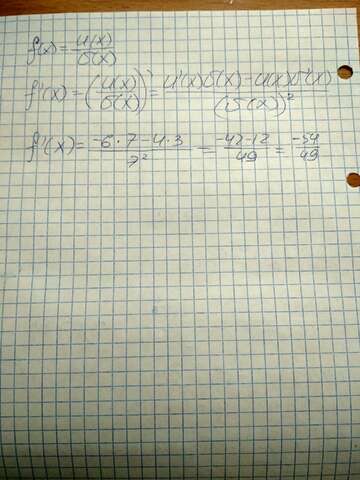 f(x) = u(x)/v(x)
f'(x) = (u(x)/v(x))' = u'(x)v(x) - u(x)v'(x)/(v(x))²
f'(x) = -6·7-4·3/7² = -42-12/49 = -54/49